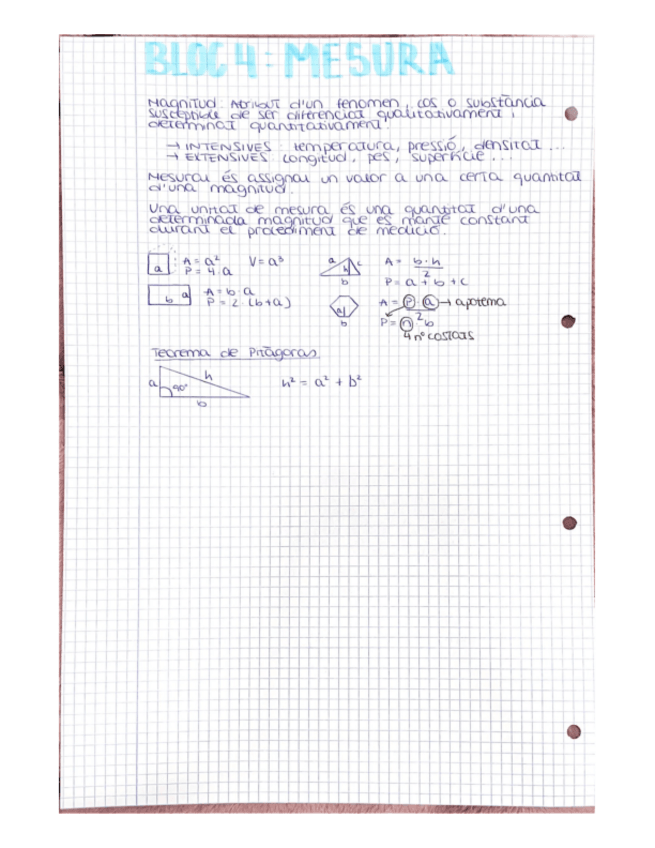 BLOC 4: MESURA
Magnitud: Atribut d'un fenomen, cos o substància
susceptible de ser diferenciat qualitativament i
determinat quantitativament.
→ INTENSIVES: temperatura, pressió, densitat...
→ EXTENSIVES: Longitud, pes, superfície...
Mesurar és assignar un valor a una certa quantitat
d'una magnitud.
Una unitat de mesura és una quantitat d'una
determinada magnitud que es manté constant
durant el procediment de medició.
a A = a² V = a³
P = 4·a
b a A = b·a
P = 2·(b+a)
a h c b A = b·h / 2
P = a + b + c
a b A = P·a / 2 → apotema
P = n·b
nº costats
Teorema de Pitàgoras
a h 90° b h² = a² + b²